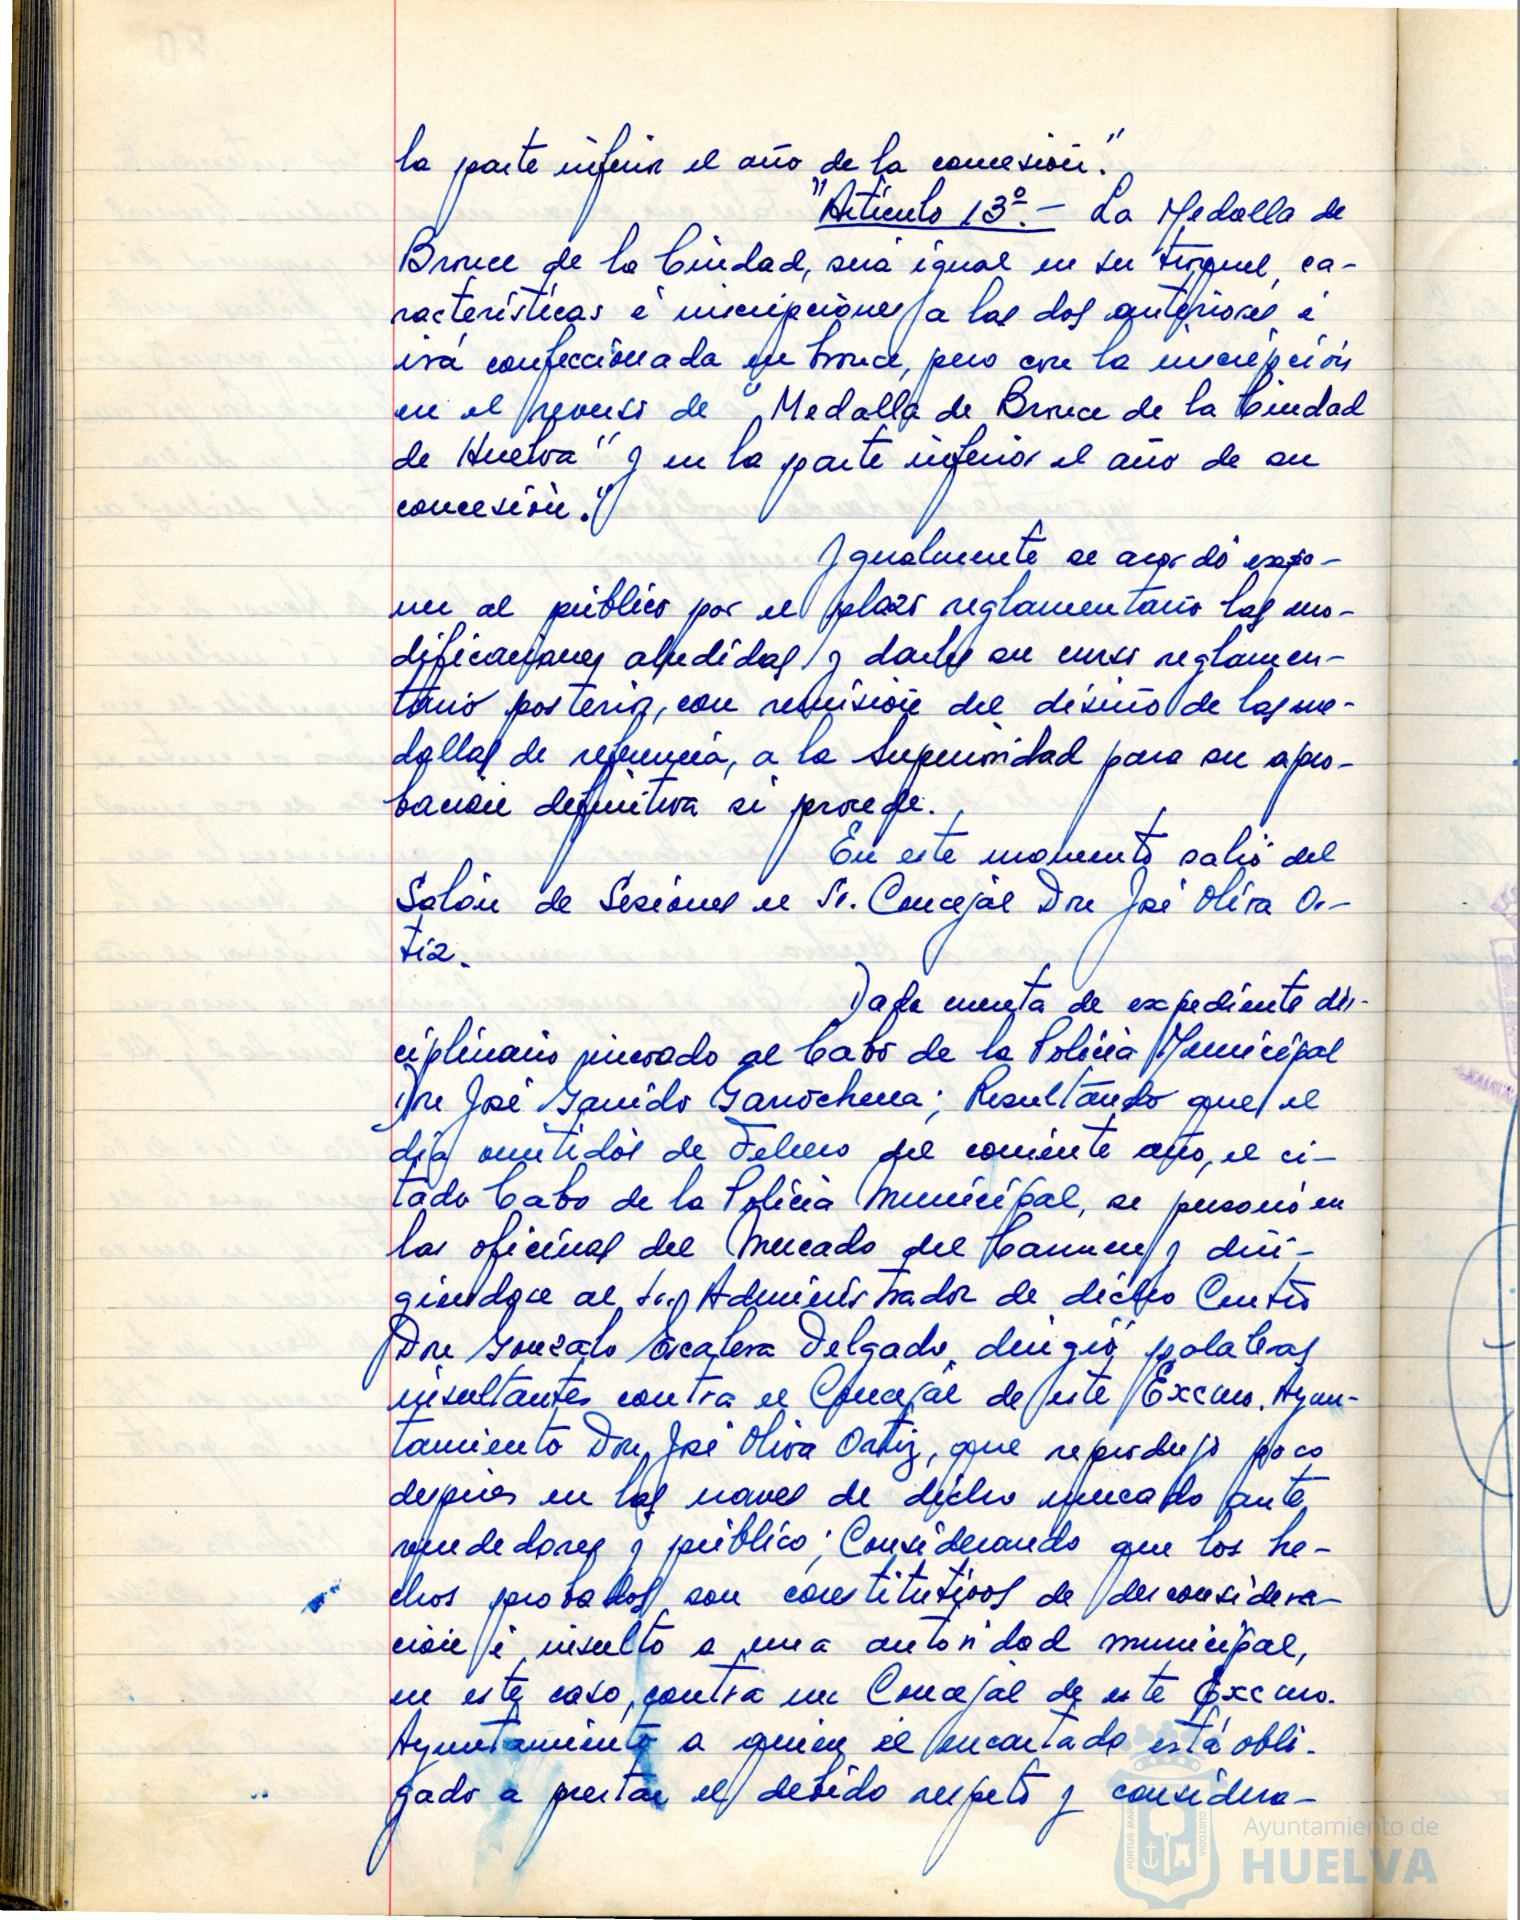 la parte inferior el año de la concesión."
"Artículo 13º.- La Medalla de
Bronce de la Ciudad, será igual en su troquel, ca-
racterísticas é inscripciones, a las dos anteriores é
irá confeccionada en bronce, pero con la inscripción
en el reverso de "Medalla de Bronce de la Ciudad
de Huelva" y en la parte inferior el año de su
concesión."
Igualmente se acordó expo-
ner al público por el plazo reglamentario las mo-
dificaciones aludidas y darles su curso reglamen-
tario posterior, con remisión del diseño de las me-
dallas de referencia, a la Superioridad para su apro-
bación definitiva si procede.
En este momento salió del
Salón de Sesiones el Sr. Concejal Don José Oliva Or-
tiz.
Dada cuenta de expediente dis-
ciplinario incoado al Cabo de la Policia Municipal
Don José Garrido Garrochena; Resultando que el
día veintidós de Febrero del corriente año, el ci-
tado Cabo de la Policia Municipal, se personó en
las oficinas del Mercado del Carmen y diri-
giendose al Sr. Administrador de dicho Centro
Don Gonzalo Escalera Delgado, dirigió palabras
insultantes contra el Concejal de este Excmo. Ayun-
tamiento Don José Oliva Ortiz, que reprodujo poco
despues en las naves de dicho mercado ante
vendedores y público; Considerando que los he-
chos probados son constitutivos de desconsidera-
ción é insulto a una autoridad municipal,
en este caso, contra un Concejal de este Excmo.
Ayuntamiento a quien el encartado está obli-
gado a prestar el debido respeto y considera-
Ayuntamiento de
HUELVA